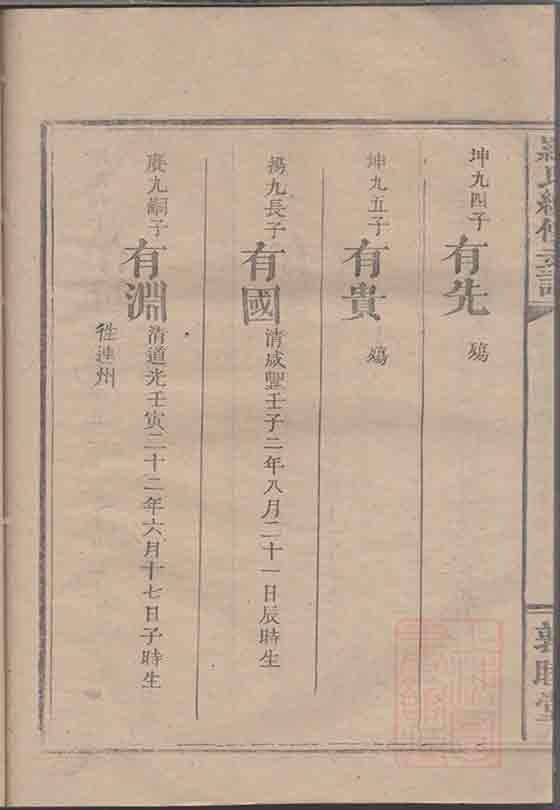 坤九四子
有先
殤
坤九五子
有貴
殤
揚九長子
有國
清咸豐壬子二年八月二十一日辰時生
廣九嗣子
有淵
清道光壬寅二十二年六月十七日子時生
徃連州